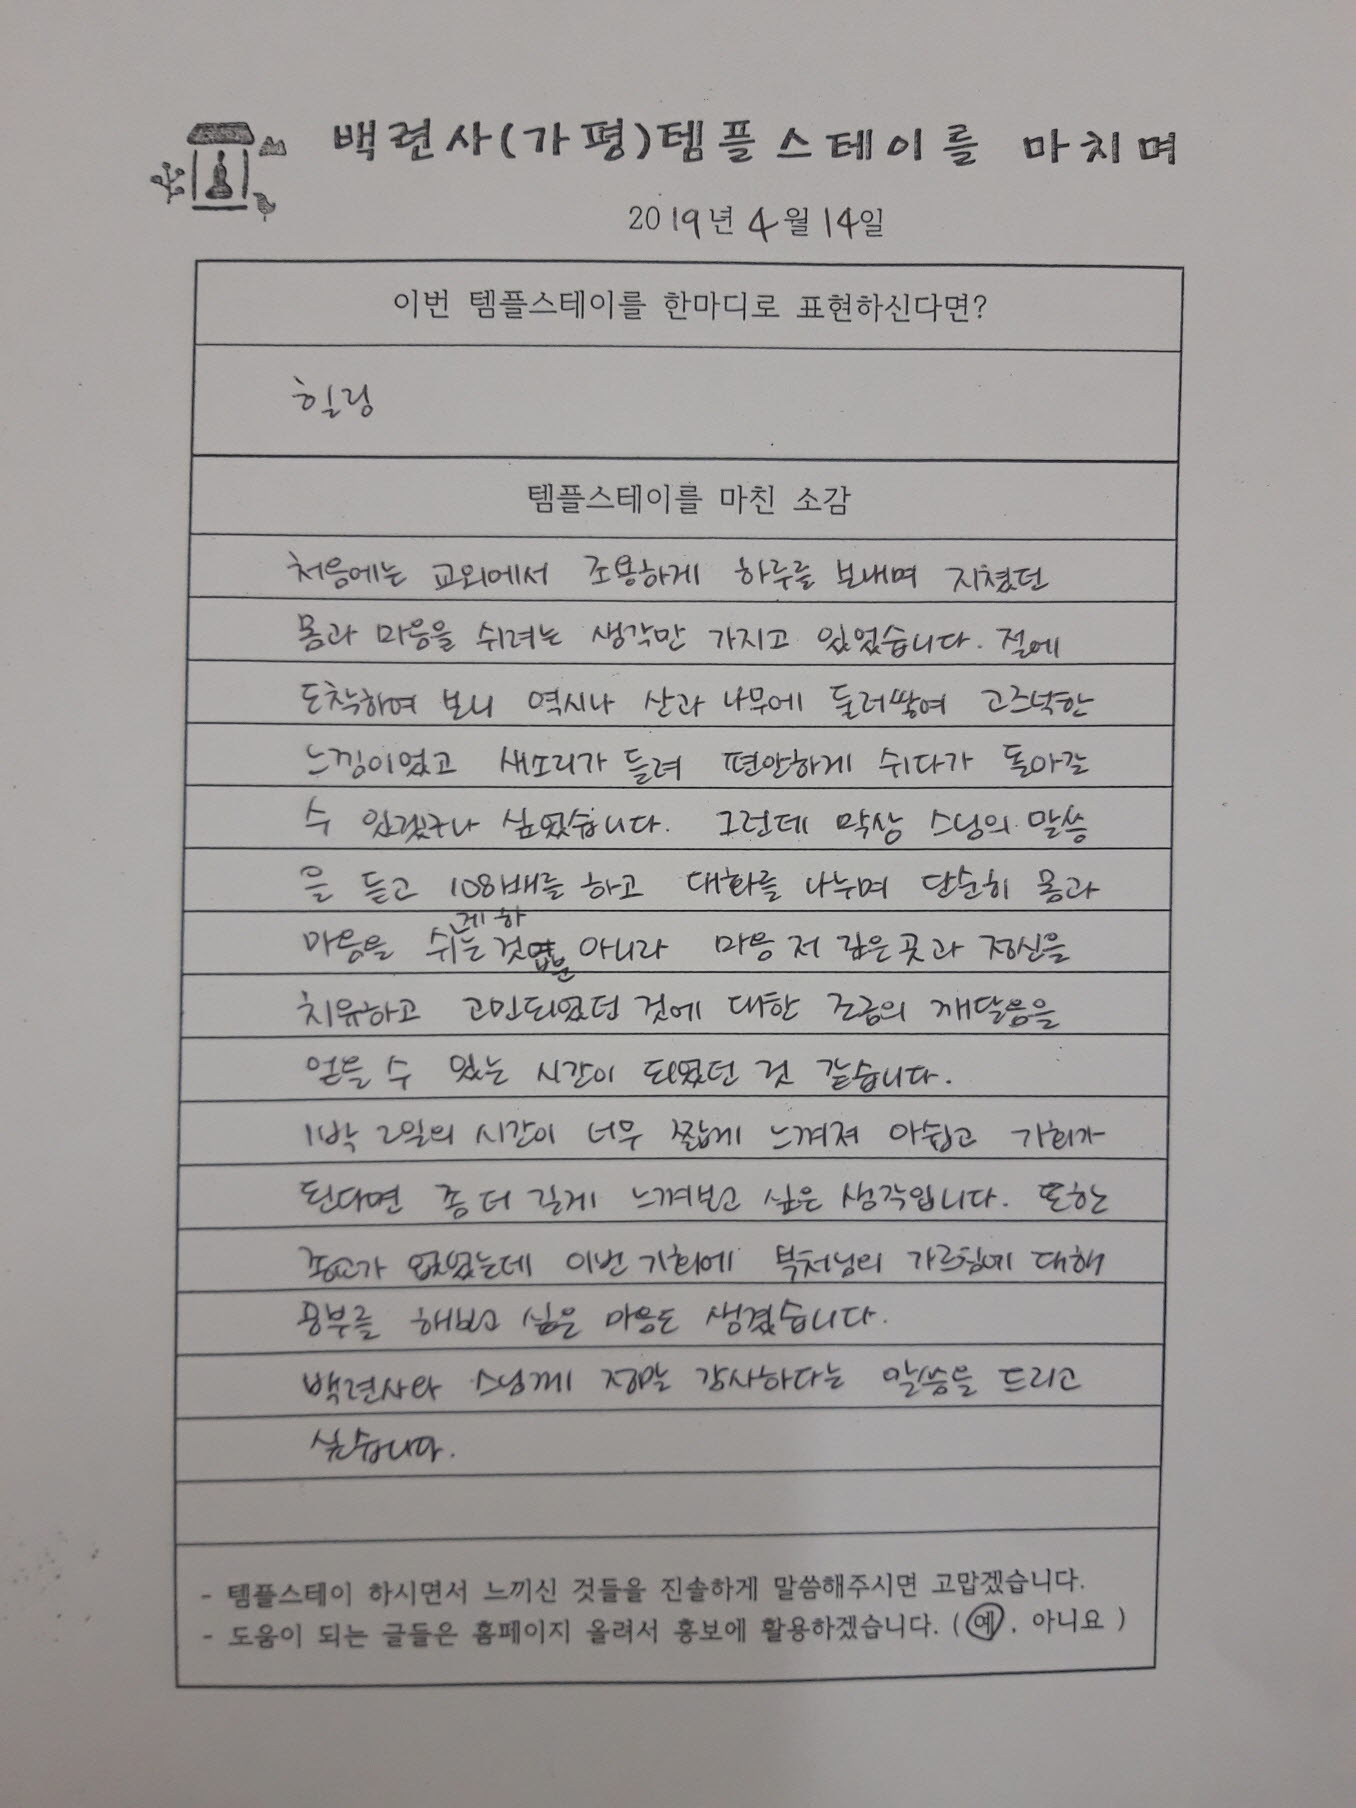 백련사(가평)템플스테이를 마치며
2019년 4월 14일
이번 템플스테이를 한마디로 표현하신다면?
힐링
템플스테이를 마친 소감
처음에는 교외에서 조용하게 하루를 보내며 지쳤던
몸과 마음을 쉬려는 생각만 가지고 있었습니다. 절에
도착하여 보니 역시나 산과 나무에 둘러쌓여 고즈넉한
느낌이었고 새소리가 들려 편안하게 쉬다가 돌아갈
수 있겠구나 싶었습니다. 그런데 막상 스님의 말씀
을 듣고 108배를 하고 대화를 나누며 단순히 몸과
마음을 쉬게하는 것뿐 아니라 마음 저 깊은 곳과 정신을
치유하고 고민되었던 것에 대한 조금의 깨달음을
얻을 수 있는 시간이 되었던 것 같습니다.
1박 2일의 시간이 너무 짧게 느껴져 아쉽고 기회가
된다면 좀 더 길게 느껴보고 싶은 생각입니다. 또한
종교가 없었는데 이번 기회에 부처님의 가르침에 대해
공부를 해보고 싶은 마음도 생겼습니다.
백련사와 스님께 정말 감사하다는 말씀을 드리고
싶습니다.
- 템플스테이 하시면서 느끼신 것들을 진솔하게 말씀해주시면 고맙겠습니다.
- 도움이 되는 글들은 홈페이지 올려서 홍보에 활용하겠습니다. ( 예 , 아니요 )